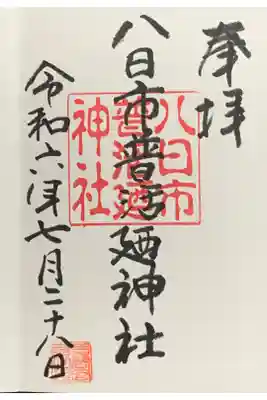 奉拝
八日市普活廼神社
八日市
普活廼
神社
令和六年七月二十八日